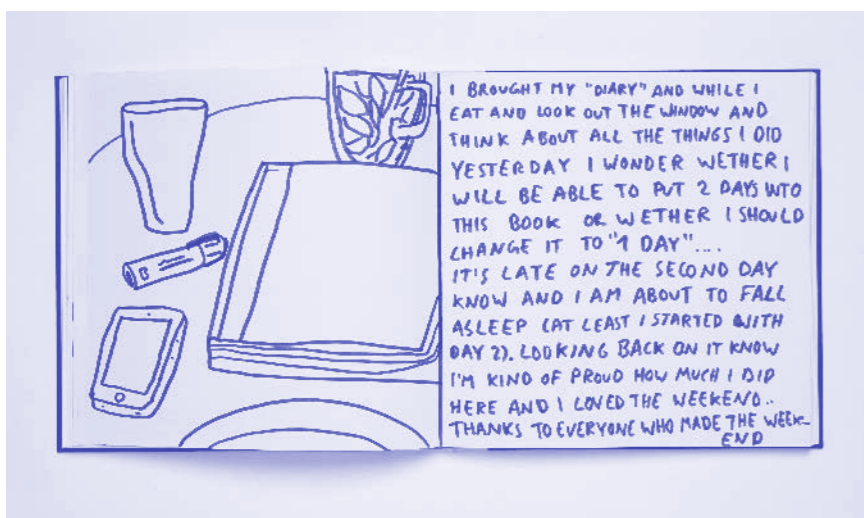 I BROUGHT MY "DIARY" AND WHILE I
EAT AND LOOK OUT THE WINDOW AND
THINK ABOUT ALL THE THINGS I DID
YESTERDAY I WONDER WETHER I
WILL BE ABLE TO PUT 2 DAYS INTO
THIS BOOK OR WETHER I SHOULD
CHANGE IT TO "1 DAY"....
IT'S LATE ON THE SECOND DAY
KNOW AND I AM ABOUT TO FALL
ASLEEP (AT LEAST I STARTED WITH
DAY 2). LOOKING BACK ON IT KNOW
I'M KIND OF PROUD HOW MUCH I DID
HERE AND I LOVED THE WEEKEND..
THANKS TO EVERYONE WHO MADE THE WEEK-
END